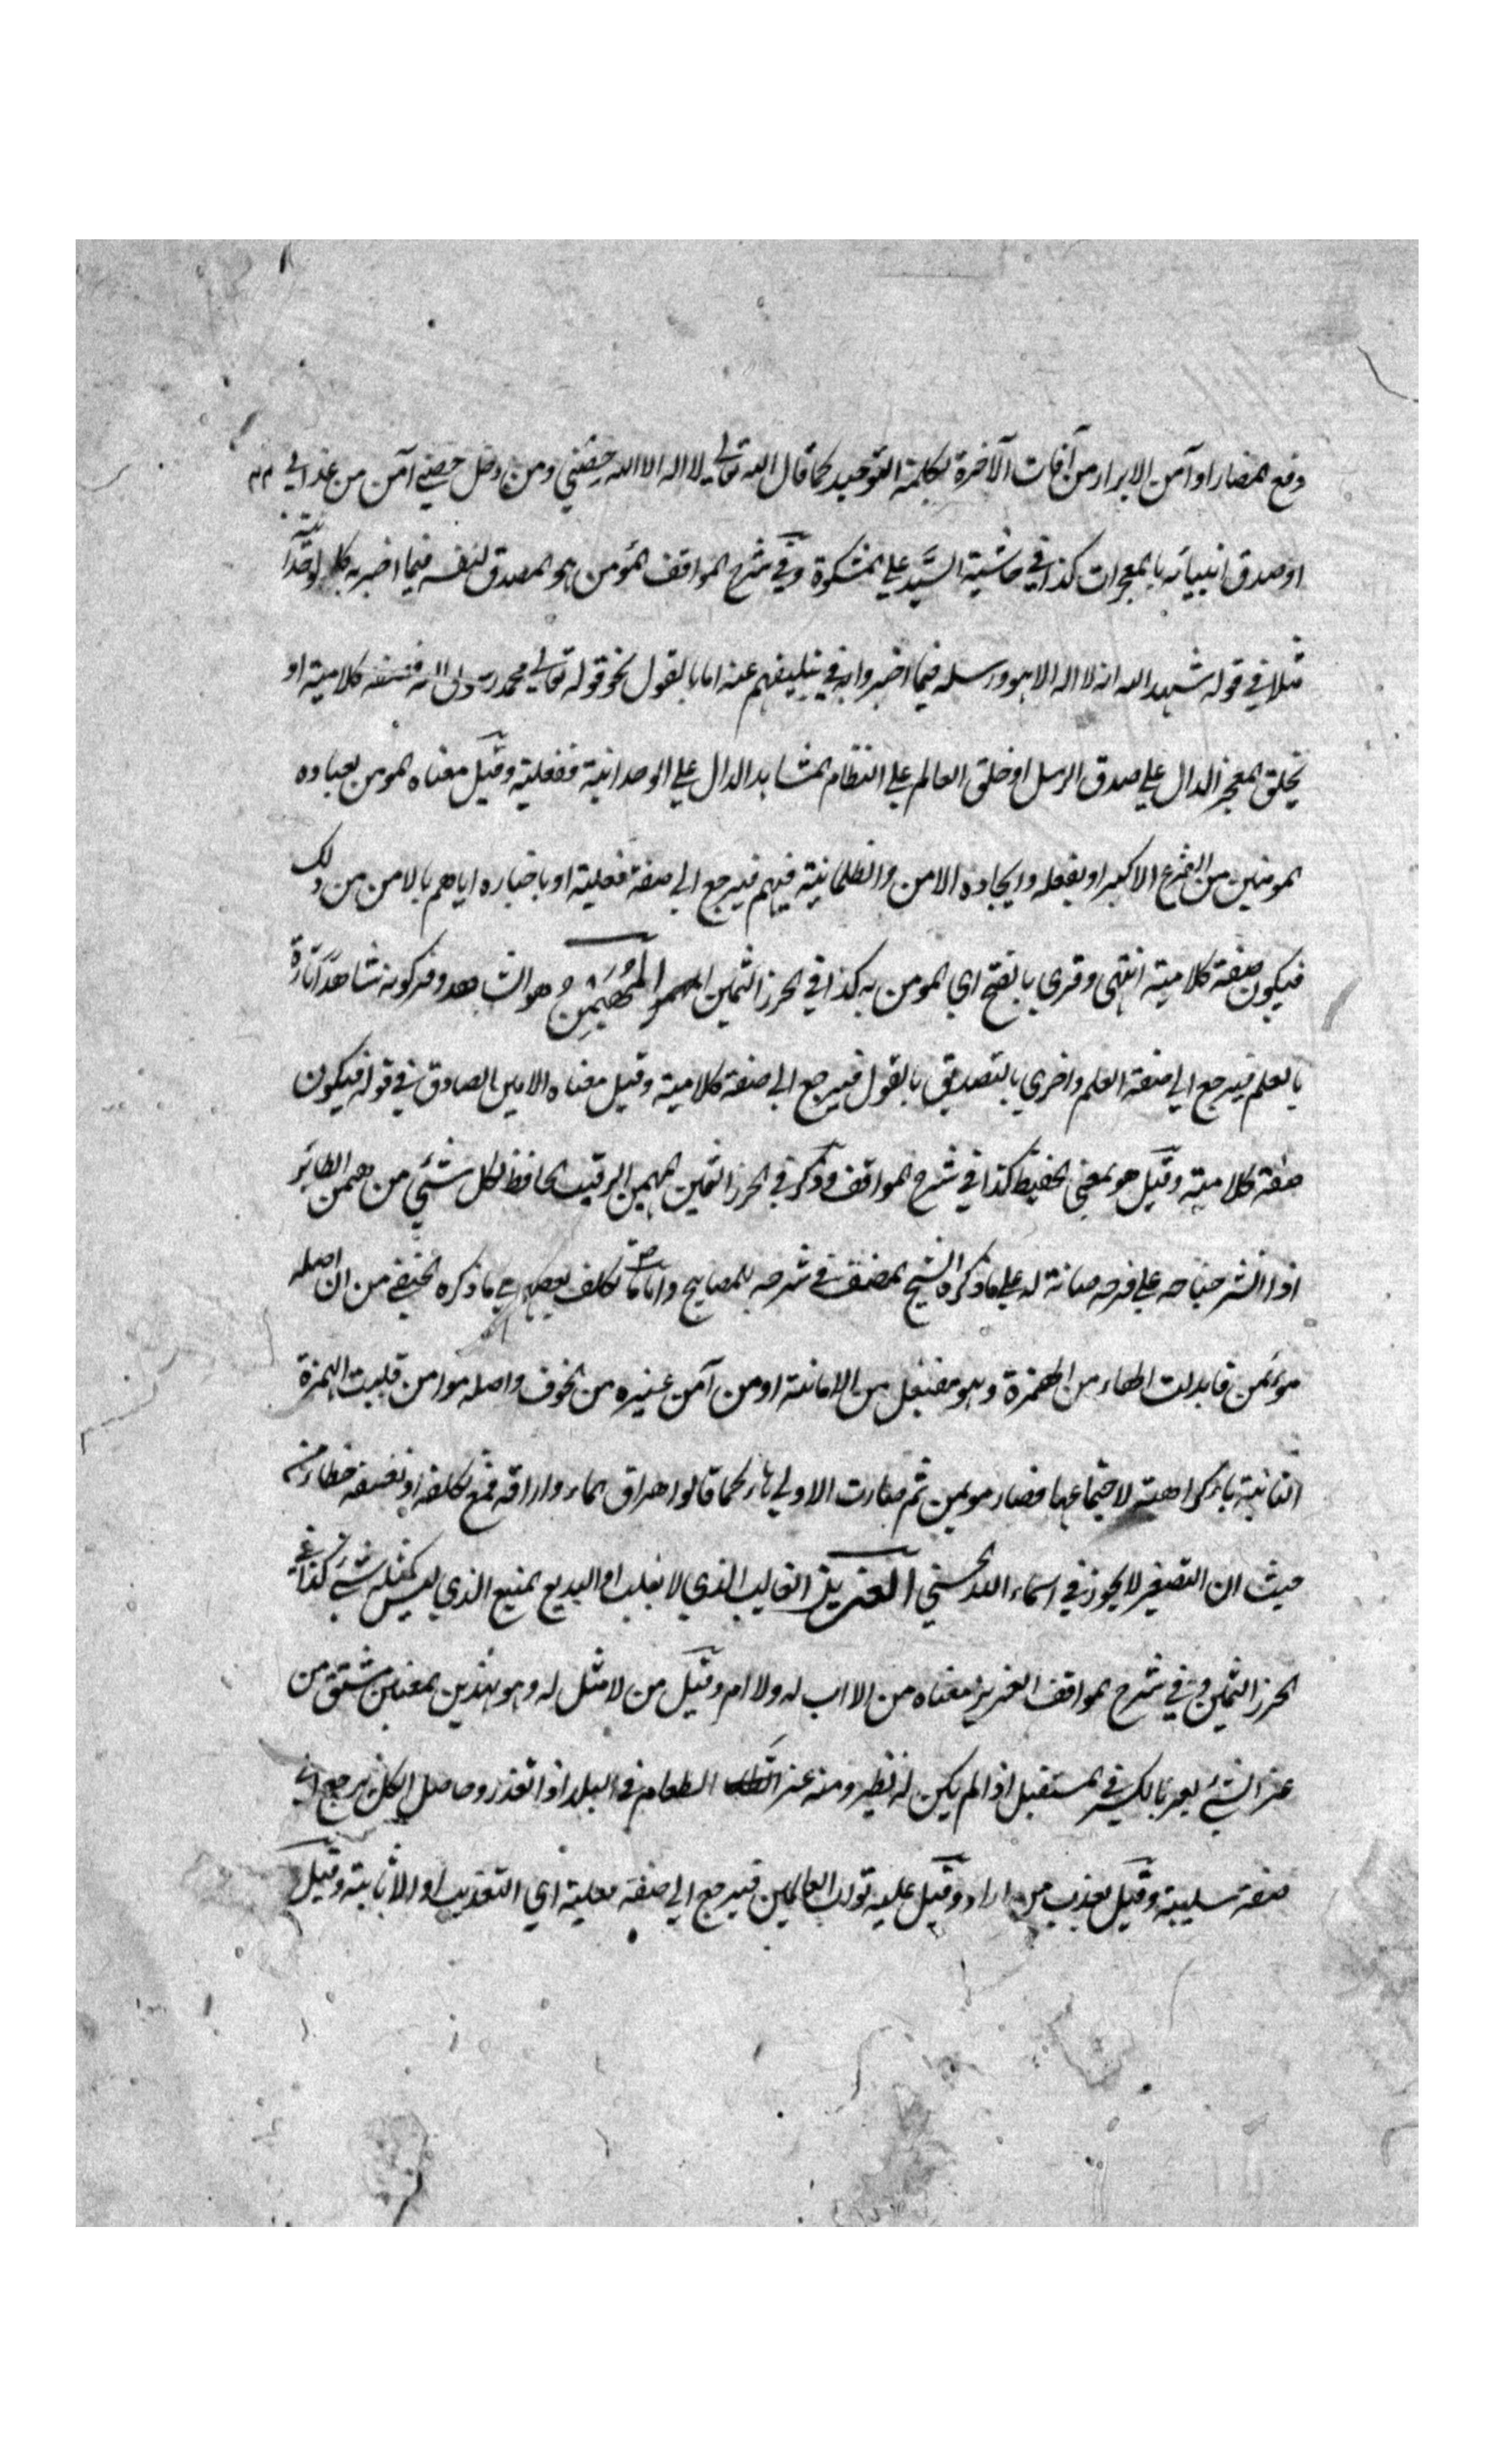 دفع المضار او آمن الابرار من آفات الآخرة بكلمة التوحيد كما قال الله تعالي لا اله الا الله حِصْني ومن دخل حصني آمن من عذابي ٢٢
او صدق انبيائه بالمعجزات كذا في حاشية السيّد علي المشكوة وفي شرح المواقف المؤمن هو المصدق لنفسه فيما اخبر به كالوحدانية
مثلا في قوله شهد الله انه لا اله الا هو ورسله فيما اخبروا به في تبليغهم عنه اما بالقول نحو قوله تعالي محمد رسول الله فصفة كلامية او
بخلق المعجز الدال علي صدق الرسل او خلق العالم علي النظام المشاهد الدال علي الوحدانية ففعلية وقيل معناه المومن لعباده
المومنين من الفزع الاكبر او بفعله وايجاده الامن والطمانية فيهم فيرجع الي صفة فعلية او باخباره اياهم بالامن من ذلك
فيكون صفة كلامية انتهي وقري بالفتح اي المومن به كذا في الحرز الثمين المُهَيْمِنُ هو الشاهد وفسر كونه شاهدا تارة
بالعلم فيرجع الي صفة العلم واخري بالتصديق بالقول فيرجع الي صفة كلامية وقيل معناه الامين الصادق في قوله فيكون
صفة كلامية وقيل هو بمعني الحفيظ كذا في شرح المواقف وذكر في الحرز الثمين المهيمن الرقيب الحافظ لكل شئي من همن الطائر
اذا نشر جناحه علي فرخه صيانة له علي ما ذكره الشيخ المصنف في شرحه للمصابيح واما ما تكلف بعضهم علي ما ذكره الحنفي من ان اصله
موئمن فابدلت الهاء من الهمزة وهو مفيعل من الامانة او من آمن غيره من الخوف واصله موامن قلبت الهمزة
الثانية ياء كراهة لاجتماعهما فصار مويمن ثم صارت الاولي هاء كما قالوا هراق الماء واراقه فمع تكلفه وتعسفه خطاء من
حيث ان التصغير لا يجوز في اسماء الله الحسني العزيز الغالب الذي لا يغلب او البديع المنيع الذي ليس كمثله شئ كذا في
الحرز الثمين وفي شرح المواقف العزيز معناه من لا اب له ولا ام وقيل من لا مثل له وهو بهذين المعنيين مشتق من
عز الشئ يعز بالكسر في المستقبل اذا لم يكن له نظير ومنه عز الطعام في البلد اذا تعذر وحاصل الكل يرجع الي
صفة سلبية وقيل يعذب من اراد وقيل عليه ثواب العالمين فيرجع الي صفة فعلية اي التعذيب او الاثابة وقيل